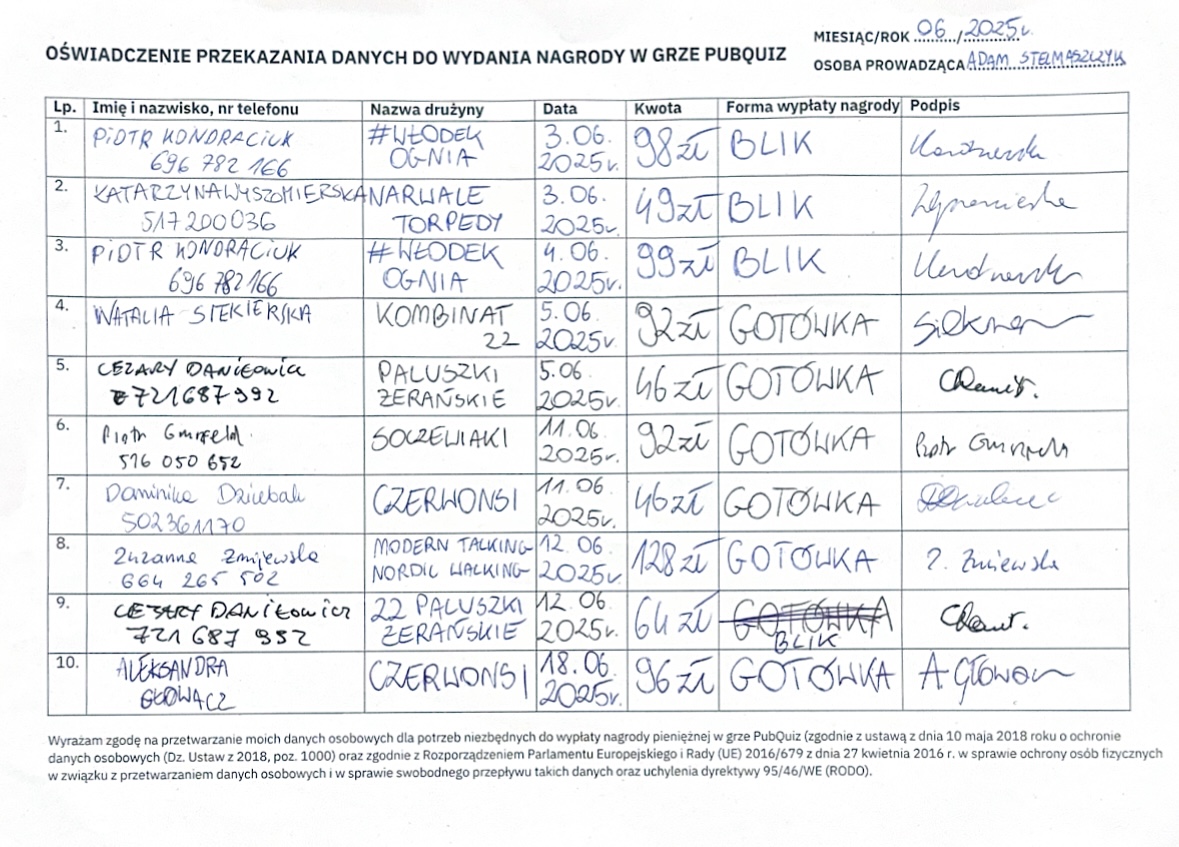 MIESIĄC/ROK 06 / 2025r.
OŚWIADCZENIE PRZEKAZANIA DANYCH DO WYDANIA NAGRODY W GRZE PUBQUIZ
OSOBA PROWADZĄCA ADAM STELMASZCZYK
Lp. Imię i nazwisko, nr telefonu Nazwa drużyny Data Kwota Forma wypłaty nagrody Podpis
1. PIOTR KONDRACIUK #WŁODEK 3.06. 98zł BLIK
696 782 166 OGNIA 2025r.
2. KATARZYNA WYSZOMIERSKA NARWALE 3.06. 49zł BLIK
517200036 TORPEDY 2025r.
3. PIOTR KONDRACIUK #WŁODEK 4.06. 99zł BLIK
696 782 166 OGNIA 2025r.
4. WATALIA SIEKIERSKA KOMBINAT 5.06. 92zł GOTÓWKA
22 2025r.
5. CEZARY DANIŁOWICZ PALUSZKI 5.06. 46zł GOTÓWKA
721687992 ŻERAŃSKIE 2025r.
6. Piotr SOCZEWIAKI 11.06. 92zł GOTÓWKA Piotr
516 050 652 2025r.
7. Dominika Dziebak CZERWONSI 11.06 46zł GOTÓWKA
502361170 2025r.
8. Zuzanna Żmijewska MODERN TALKING- 12.06. 128zł GOTÓWKA Z. Żmijewska
664 265 502 NORDIC WALKING- 2025r.
9. CEZARY DANIŁOWICZ 22 PALUSZKI 12.06. 64zł GOTÓWKA
721 687 992 ŻERAŃSKIE 2025r. BLIK
10. ALEKSANDRA CZERWONSI 18.06. 96zł GOTÓWKA
GŁOWACZ 2025r.
Wyrażam zgodę na przetwarzanie moich danych osobowych dla potrzeb niezbędnych do wypłaty nagrody pieniężnej w grze PubQuiz (zgodnie z ustawą z dnia 10 maja 2018 roku o ochronie
danych osobowych (Dz. Ustaw z 2018, poz. 1000) oraz zgodnie z Rozporządzeniem Parlamentu Europejskiego i Rady (UE) 2016/679 z dnia 27 kwietnia 2016 r. w sprawie ochrony osób fizycznych
w związku z przetwarzaniem danych osobowych i w sprawie swobodnego przepływu takich danych oraz uchylenia dyrektywy 95/46/WE (RODO).